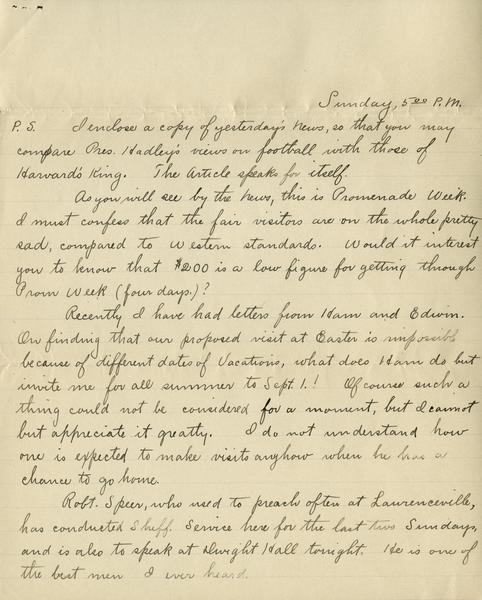 Sunday, 5:00 P.M.
P.S. I enclose a copy of yesterday's News, so that you may
compare Pres. Hadley's views on football with those of
Harvard's King. The Article speaks for itself.
As you will see by the News, this is Promenade Week.
I must confess that the fair visitors are on the whole pretty
sad, compared to Western standards. Would it interest
you to know that $200 is a low figure for getting through
Prom Week (four days.)?
Recently I have had letters from Ham and Edwin.
On finding that our proposed visit at Easter is impossible
because of different dates of Vacations, what does Ham do but
invite me for all summer to Sept. 1.! Of course such a
thing could not be considered for a moment, but I cannot
but appreciate it greatly. I do not understand how
one is expected to make visits anyhow when he has a
chance to go home.
Robt. Speer, who used to preach often at Lawrenceville,
has conducted Sheff. Service here for the last two Sundays,
and is also to speak at Dwight Hall tonight. He is one of
the best men I ever heard.